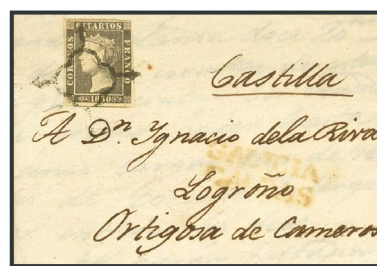 6 CUARTOS
CORREOS
FRANCO
1850
Castilla
A Dn. Ygnacio dela Riva
Logroño
Ortigosa de Cameros